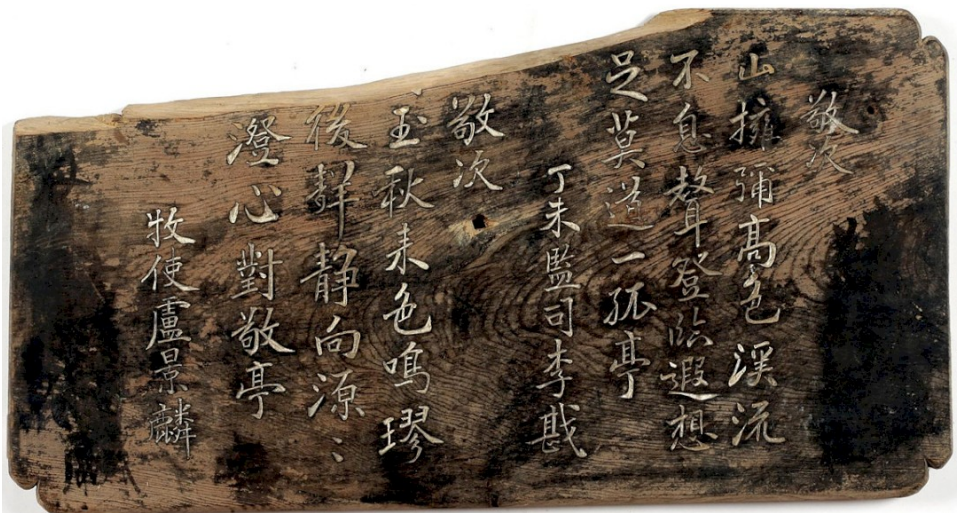 敬次
山擁彌高色溪流
不息聲登臨遐想
足莫道一孤亭
丁未監司李戡
敬次
玉秋来色鳴璆
後聲静向源〻
澄心對敬亭
牧使盧景麟